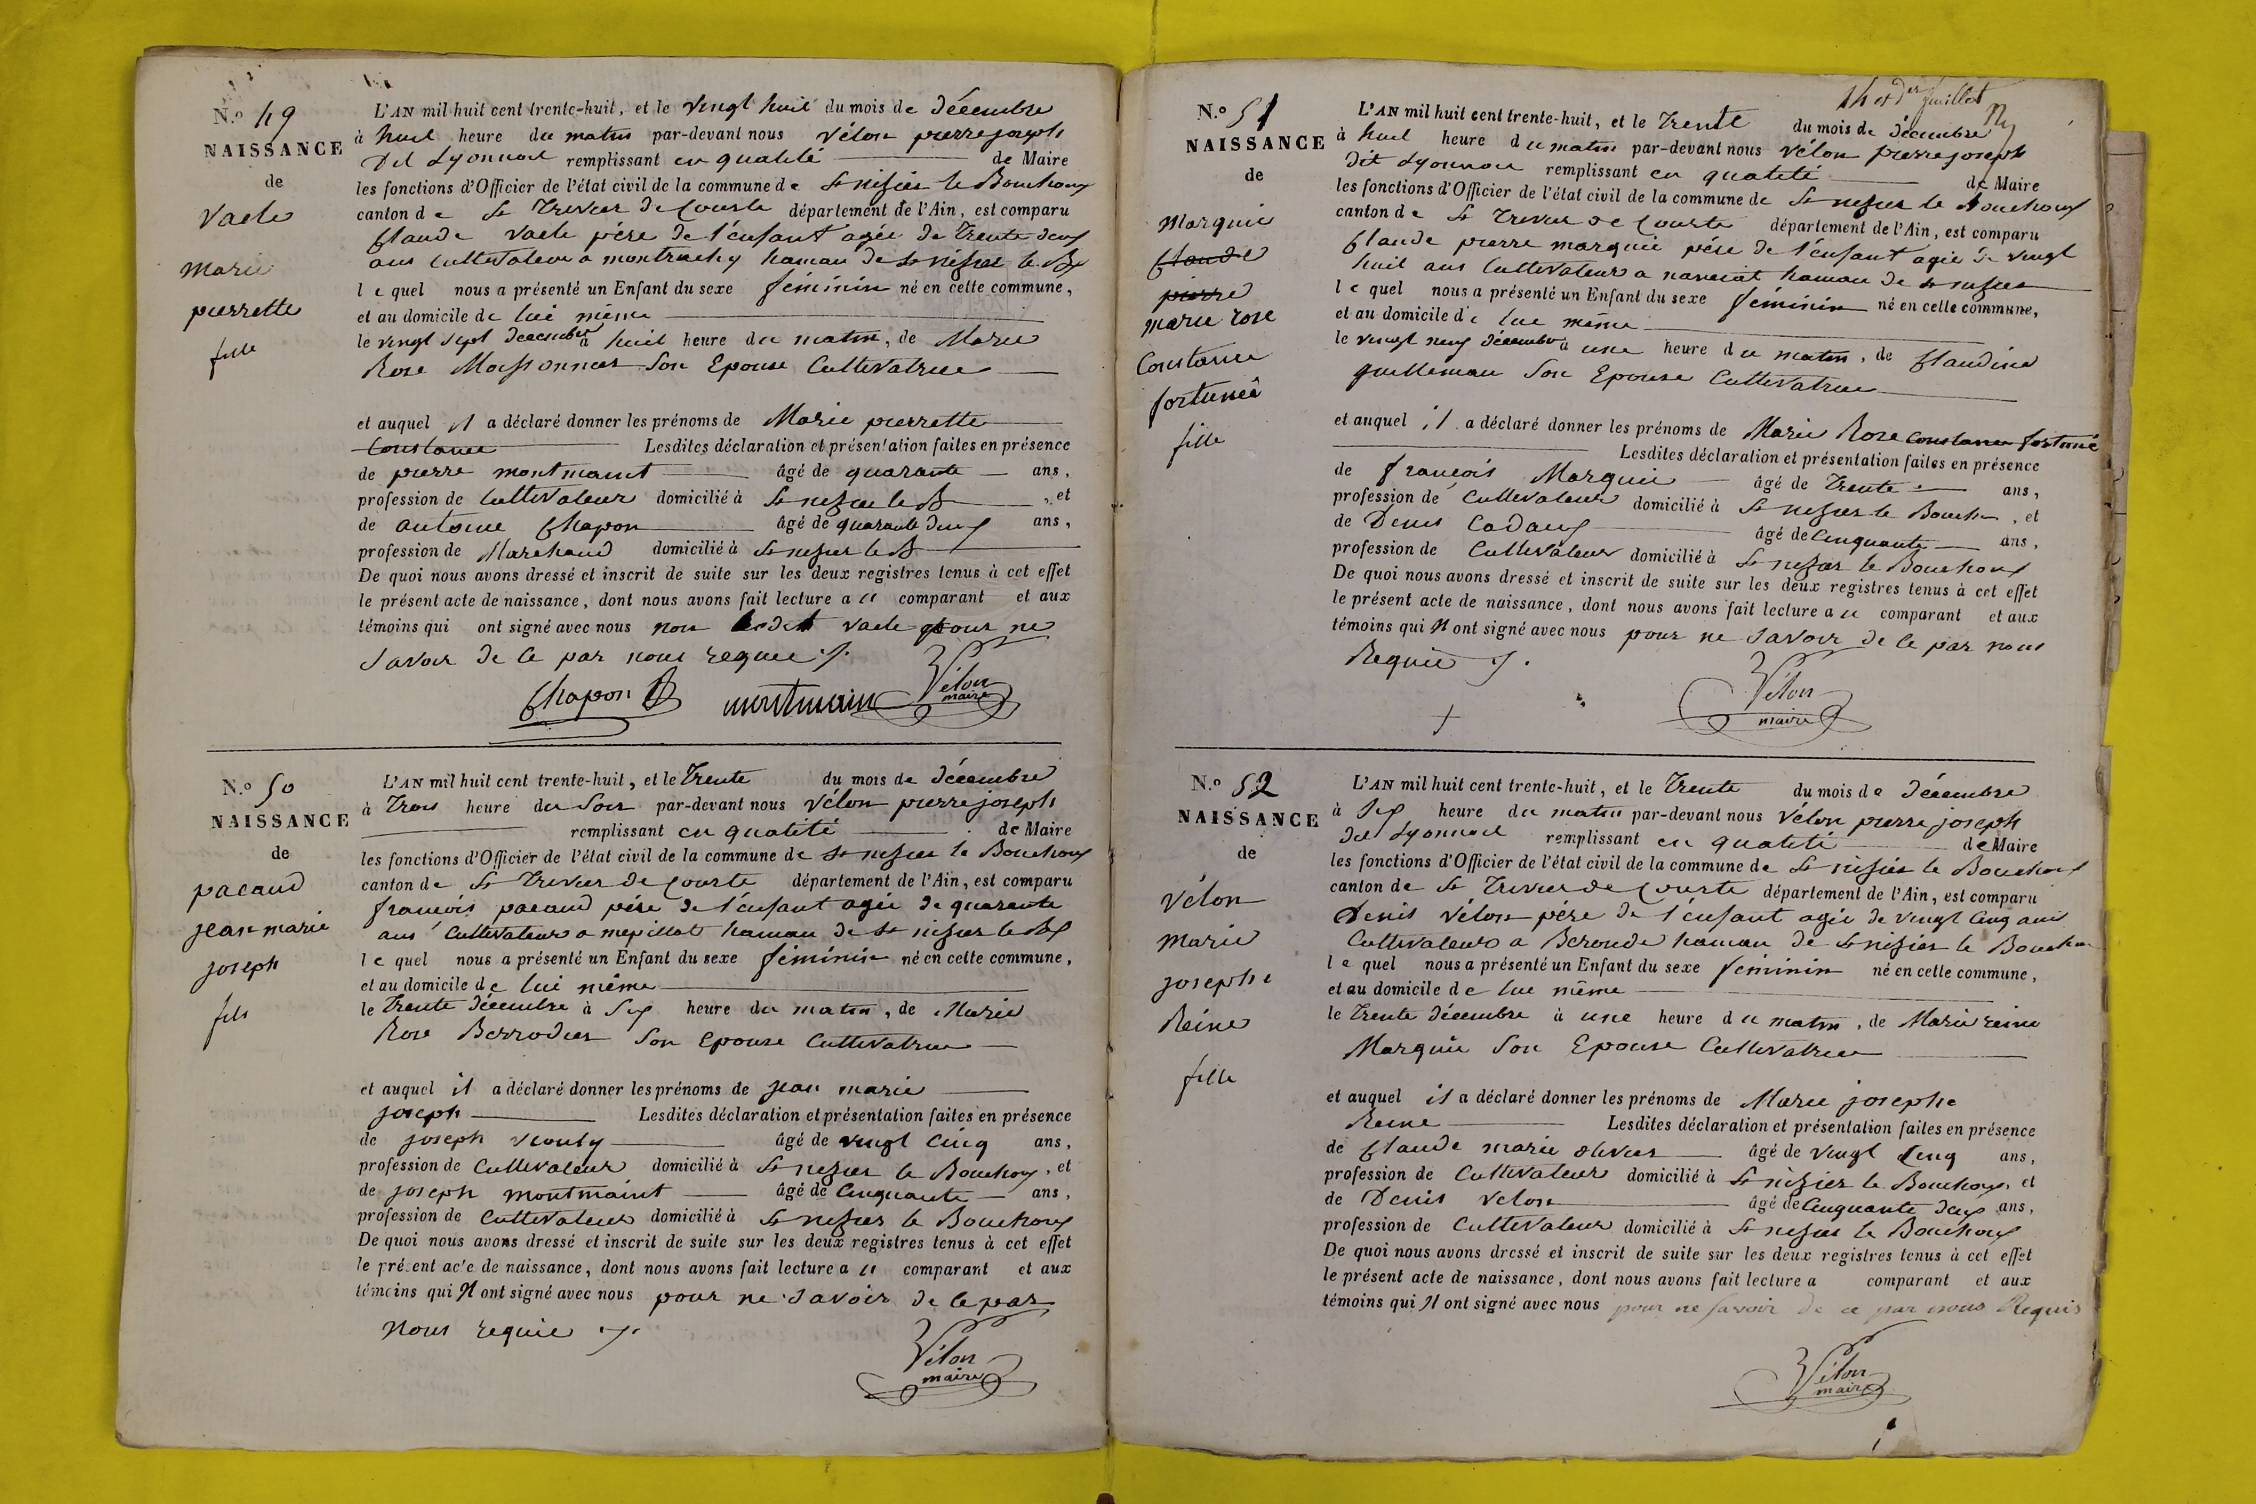 N.o 49
NAISSANCE
de
Vacle
Marie
pierrette
fille
L'AN mil huit cent trente-huit, et le vingt huit du mois de décembre
à huit heure du matin par-devant nous Vélon pierre joseph
Dit Lyonnai remplissant en qualité de Maire
les fonctions d'Officier de l'état civil de la commune de St nizier le Bouchoux
canton de St Trivier de Courte département de l'Ain, est comparu
Claude Vacle père de l'enfant agée de trente deux
ans cultivateur a montrachy hamau de St nizier le Bx
le quel nous a présenté un Enfant du sexe féminin né en cette commune,
et au domicile de lui même
le vingt sept décembre à huit heure du matin, de Marie
Rose Moissonnier Son Epouse Cultivatrice
et auquel il a déclaré donner les prénoms de Marie pierrette
Constance Lesdites déclaration et présentation faites en présence
de pierre montmaint âgé de quarante ans,
profession de Cultivateur domicilié à St nizier le B , et
de antoine Chapon âgé de quarante deux ans,
profession de Marchand domicilié à St nizier le B
De quoi nous avons dressé et inscrit de suite sur les deux registres tenus à cet effet
le présent acte de naissance, dont nous avons fait lecture au comparant et aux
témoins qui ont signé avec nous non ledit Vacle pour ne
Savoir de ce par nous requie ./.
Chapon montmain Vélon
maire
N.o 50
NAISSANCE
de
pacaud
jean marie
joseph
fils
L'AN mil huit cent trente-huit, et le Trente du mois de décembre
à Trois heure du Soir par-devant nous Vélon pierre joseph
remplissant en qualité de Maire
les fonctions d'Officier de l'état civil de la commune de St nizier le Bouchoux
canton de St Trivier de Courte département de l'Ain, est comparu
françois pacaud père de l'enfant agée de quarante
ans Cultivateur a mepillat hamau de St nizier le Bx
le quel nous a présenté un Enfant du sexe féminin né en cette commune,
et au domicile de lui même
le Trente décembre à Six heure du matin, de Marie
Rose Berrodier Son Epouse Cultivatrice
et auquel il a déclaré donner les prénoms de jean marie
joseph Lesdites déclaration et présentation faites en présence
de joseph âgé de vingt cinq ans,
profession de Cultivateur domicilié à St nizier le Bouchoux, et
de joseph montmaint âgé de Cinquante ans,
profession de Cultivateur domicilié à St nizier le Bouchoux
De quoi nous avons dressé et inscrit de suite sur les deux registres tenus à cet effet
le présent acte de naissance, dont nous avons fait lecture au comparant et aux
témoins qui N ont signé avec nous pour ne Savoir de ce par
Nous requie ./.
Vélon
maire
14 et der feuillet
N.o 51
NAISSANCE
de
Marquie
Claude
pierre
marie rose
Constance
fortuneé
fille
L'AN mil huit cent trente-huit, et le Trente du mois de décembre
à huit heure du matin par-devant nous Vélon pierre joseph
Dit Lyonnai remplissant en qualité de Maire
les fonctions d'Officier de l'état civil de la commune de St nizier le Bouchoux
canton de St Trivier de Courte département de l'Ain, est comparu
Claude pierre marquie père de l'enfant agée de vingt
huit ans Cultivateur a hamau de St nizier
le quel nous a présenté un Enfant du sexe féminin né en cette commune,
et au domicile de lui même
le vingt neuf décembre à une heure du matin, de Claudine
guilleman Son Epouse Cultivatrice
et auquel il a déclaré donner les prénoms de Marie Rose Constance fortuné
Lesdites déclaration et présentation faites en présence
de françois Marquie âgé de Trente ans,
profession de Cultivateur domicilié à St nizier le Bouchx, et
de Denis Cadaux âgé de Cinquante ans,
profession de Cultivateur domicilié à St nizier le Bouchoux
De quoi nous avons dressé et inscrit de suite sur les deux registres tenus à cet effet
le présent acte de naissance, dont nous avons fait lecture au comparant et aux
témoins qui N ont signé avec nous pour ne Savoir de ce par nous
Requie ./.
Vélon
maire
N.o 52
NAISSANCE
de
Vélon
Marie
josephe
Reine
fille
L'AN mil huit cent trente-huit, et le Trente du mois de décembre
à Six heure du matin par-devant nous Vélon pierre joseph
Dit Lyonnai remplissant en qualité de Maire
les fonctions d'Officier de l'état civil de la commune de St nizier le Bouchoux
canton de St Trivier de Courte département de l'Ain, est comparu
Denis Vélon père de l'enfant agée de vingt Cinq ans
Cultivateur a Beronde hamau de St nizier le Bouchoux
le quel nous a présenté un Enfant du sexe féminin né en cette commune,
et au domicile de lui même
le Trente décembre à une heure du matin, de Marie reine
Marquie Son Epouse Cultivatrice
et auquel il a déclaré donner les prénoms de Marie josephe
Reine Lesdites déclaration et présentation faites en présence
de Claude marie olivier âgé de vingt Cinq ans,
profession de Cultivateur domicilié à St nizier le Bouchoux, et
de Denis Velon âgé de Cinquante deux ans,
profession de Cultivateur domicilié à St nizier le Bouchoux
De quoi nous avons dressé et inscrit de suite sur les deux registres tenus à cet effet
le présent acte de naissance, dont nous avons fait lecture a comparant et aux
témoins qui N ont signé avec nous pour ne savoir de ce par nous Requis
Vélon
maire